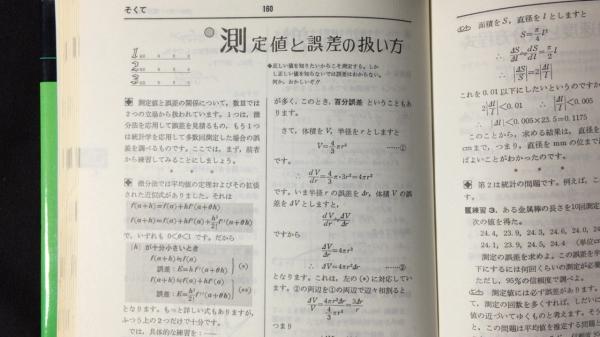 そくて
160
測定値と誤差の扱い方
1
2
3
◆正しい値を知りたいからこそ測定する。しか
し正しい値を知らないでは誤差はわからない。
何か、おかしいぞ!?
測定値と誤差の関係について，数量では
2つの立場から扱われています。1つは，微
分法を応用して誤差を見積もるもの，もう1つ
は統計学を応用して多数回測定した場合の誤
差を調べるものです。ここでは，まず，前者
から練習してみることにしましょう。
* * *
微分法では平均値の定理およびその拡張
された近似式がありました。それは
f(a+h)=f(a)+hf'(a+θh)
f(a+h)=f(a)+hf'(a)+h²/2 f''(a+θh)
で，いずれも 0<θ<1 です。だから
|h| が十分小さいとき
f(a+h)≒f(a)
誤差：E=hf'(a+θh) (*)
f(a+h)≒f(a)+hf'(a)
誤差：E=h²/2 f''(a+θh) (**)
となります。もっと詳しい式もありますが，
ふつう上の2つだけで十分です。
では，具体的な練習を：——
が多く，このとき，百分誤差 ということもあ
ります。
さて，体積を V，半径を r としますと
V=4/3 πr³ ……①
です。
∴ dV/dr=4/3 π·3r²=4πr²
です。いま半径 r の誤差を Δr，体積 V の誤
差を ΔV としますと，
dV/dr≒ΔV/Δr
ですから
ΔV/Δr≒4πr²
∴ ΔV≒4πr²Δr ……②
となります。これは，左の (*) に対応してい
ます。②の両辺を①の両辺で辺々相割ると
つまり
面積を S，直径を l としますと
S=π/4 l²
∴ dS/dl≒ΔS/Δl=π/2 l
∴ |ΔS/S|=2|Δl/l|
これを 0.01 以下にしたいというのですから
2|Δl/l|<0.01 ∴ |Δl/l|<0.005
∴ |Δl|<0.005×23.5=0.1175
このことから，求める結果は，直径を
cm まで，つまり，直径を mm の位まで
ばよいことがわかったのです。
* * *
第2は統計の問題です。例えば，こ
す。
練習 3. ある金属棒の長さを10回測定
次の値を得た。
24.4, 23.9, 24.3, 24.6, 24.0, 24
24.2, 24.1, 23.9, 24.4 (単位c
測定の誤差を求めよ。この誤差を半
下にするには何回くらいの測定が必要
ただし，95％の信頼度で調べよ。
測定値には必ず誤差があります。
て，測定の回数を多くすれば，しだいに
値の近づいてゆくものと考えます。そう
と，この問題は平均値を推定する問題と